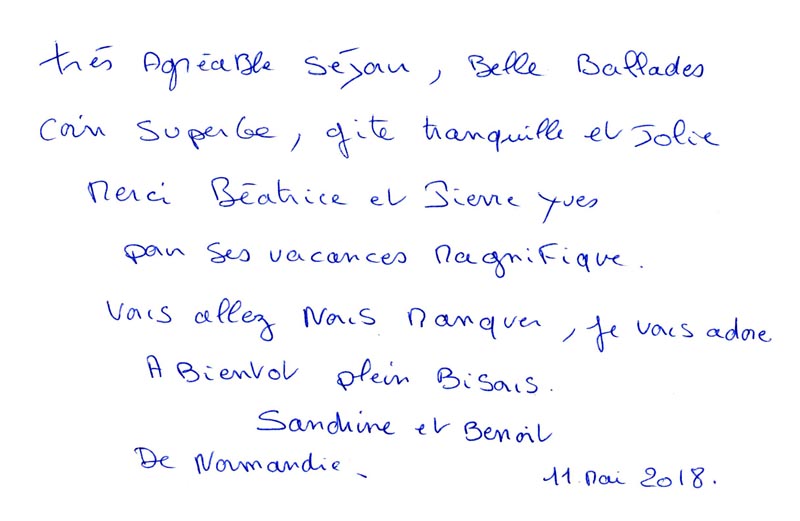 très Agréable Séjour, Belle Ballades
Coin Superbe, gite tranquille et Jolie
Merci Béatrice et Pierre Yves
pour Ses vacances Magnifique.
Vous allez Nous Manquer, je vous adore
A Bientot plein Bisous.
Sandrine et Benoit
De Normandie.
11 Mai 2018.